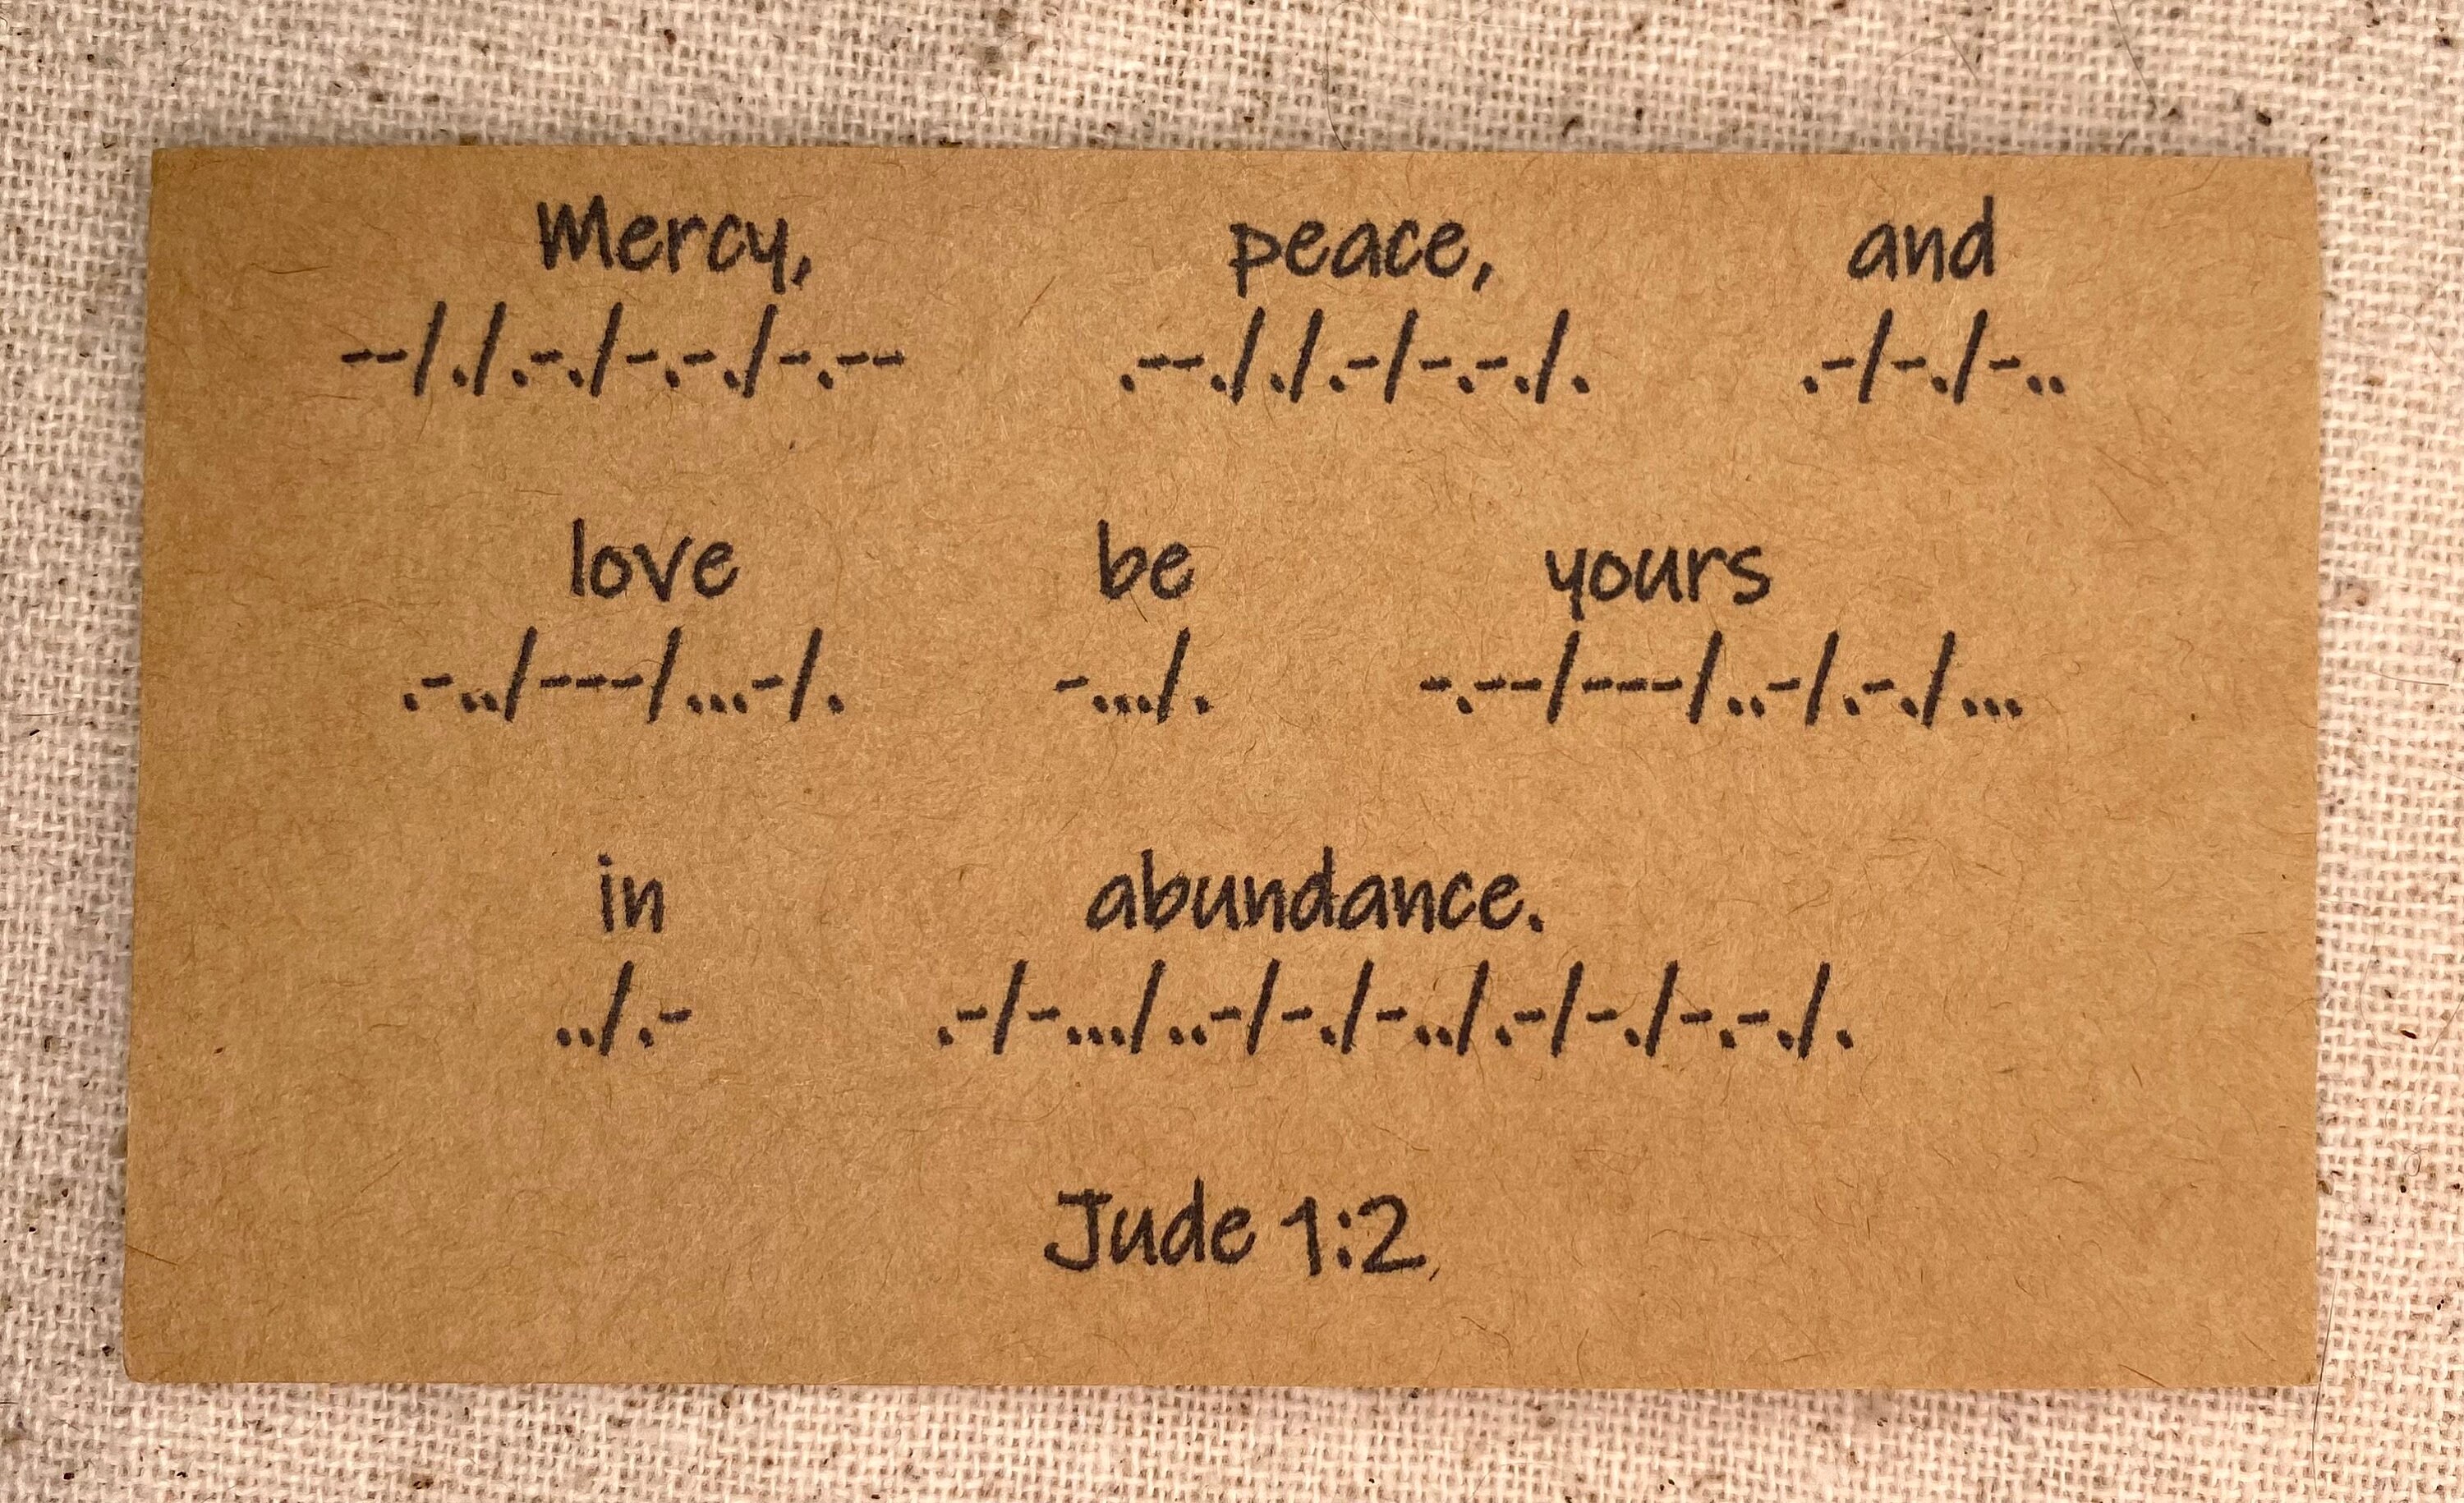 Mercy, peace, and
--/./.-./-.-./-.-- .--././.-/-.-./. .-/-./-..
love be yours
.-../---/...-/. -.../. -.--/---/..-/.-./...
in abundance.
../.- .-/-.../..-/-./-../.-/-./-.-./.
Jude 1:2